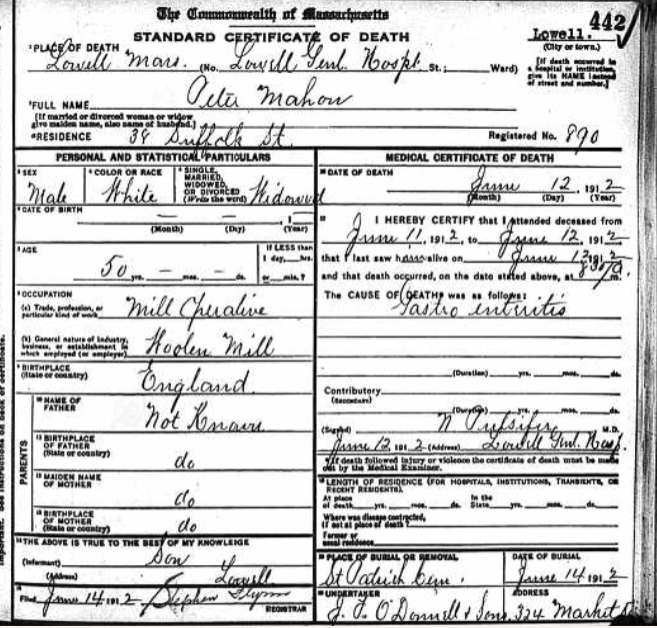 The Commonwealth of Massachusetts
442
STANDARD CERTIFICATE OF DEATH
Lowell.
(City or town.)
1 PLACE OF DEATH
Lowell Mass. (No. Lowell Genl. Hospt. St.; Ward)
[If death occurred in a hospital or institution, give its NAME instead of street and number.]
2 FULL NAME Peter Mahon
[If married or divorced woman or widow give maiden name, also name of husband.]
RESIDENCE 38 Suffolk St.
Registered No. 890
PERSONAL AND STATISTICAL PARTICULARS
3 SEX Male
4 COLOR OR RACE White
5 SINGLE, MARRIED, WIDOWED, OR DIVORCED (Write the word) Widowed
6 DATE OF BIRTH — — 1
(Month) (Day) (Year)
7 AGE
50 yrs. — mos. — ds.
If LESS than 1 day, hrs. or min.?
8 OCCUPATION
(a) Trade, profession, or particular kind of work Mill Operative
(b) General nature of industry, business, or establishment in which employed (or employer) Woolen Mill
9 BIRTHPLACE (State or country) England
PARENTS
10 NAME OF FATHER Not Known
11 BIRTHPLACE OF FATHER (State or country) do
12 MAIDEN NAME OF MOTHER do
13 BIRTHPLACE OF MOTHER (State or country) do
14 THE ABOVE IS TRUE TO THE BEST OF MY KNOWLEDGE
(Informant) Son
(Address) Lowell
15
Filed June 14 1912 Stephen Flynn
REGISTRAR
MEDICAL CERTIFICATE OF DEATH
16 DATE OF DEATH
June 12, 1912
(Month) (Day) (Year)
17 I HEREBY CERTIFY that I attended deceased from
June 11, 1912, to June 12, 1912
that I last saw him alive on June 12, 1912
and that death occurred, on the date stated above, at m.
The CAUSE OF DEATH was as follows:
Gastro interitis
(Duration) yrs. mos. ds.
Contributory
(SECONDARY)
(Duration) yrs. mos. ds.
(Signed) N Pulsifer M.D.
June 12 1912 (Address) Lowell Genl. Hosp.
If death followed injury or violence the certificate of death must be made out by the Medical Examiner.
18 LENGTH OF RESIDENCE (FOR HOSPITALS, INSTITUTIONS, TRANSIENTS, OR RECENT RESIDENTS).
At place of death yrs. mos. ds. In the State yrs. mos. ds.
Where was disease contracted, if not at place of death?
Former or usual residence
19 PLACE OF BURIAL OR REMOVAL
St Patrick Cem.
DATE OF BURIAL
June 14 1912
20 UNDERTAKER
J. F. O'Donnell & Sons
ADDRESS
324 Market St
Important. See instructions on back of certificate.